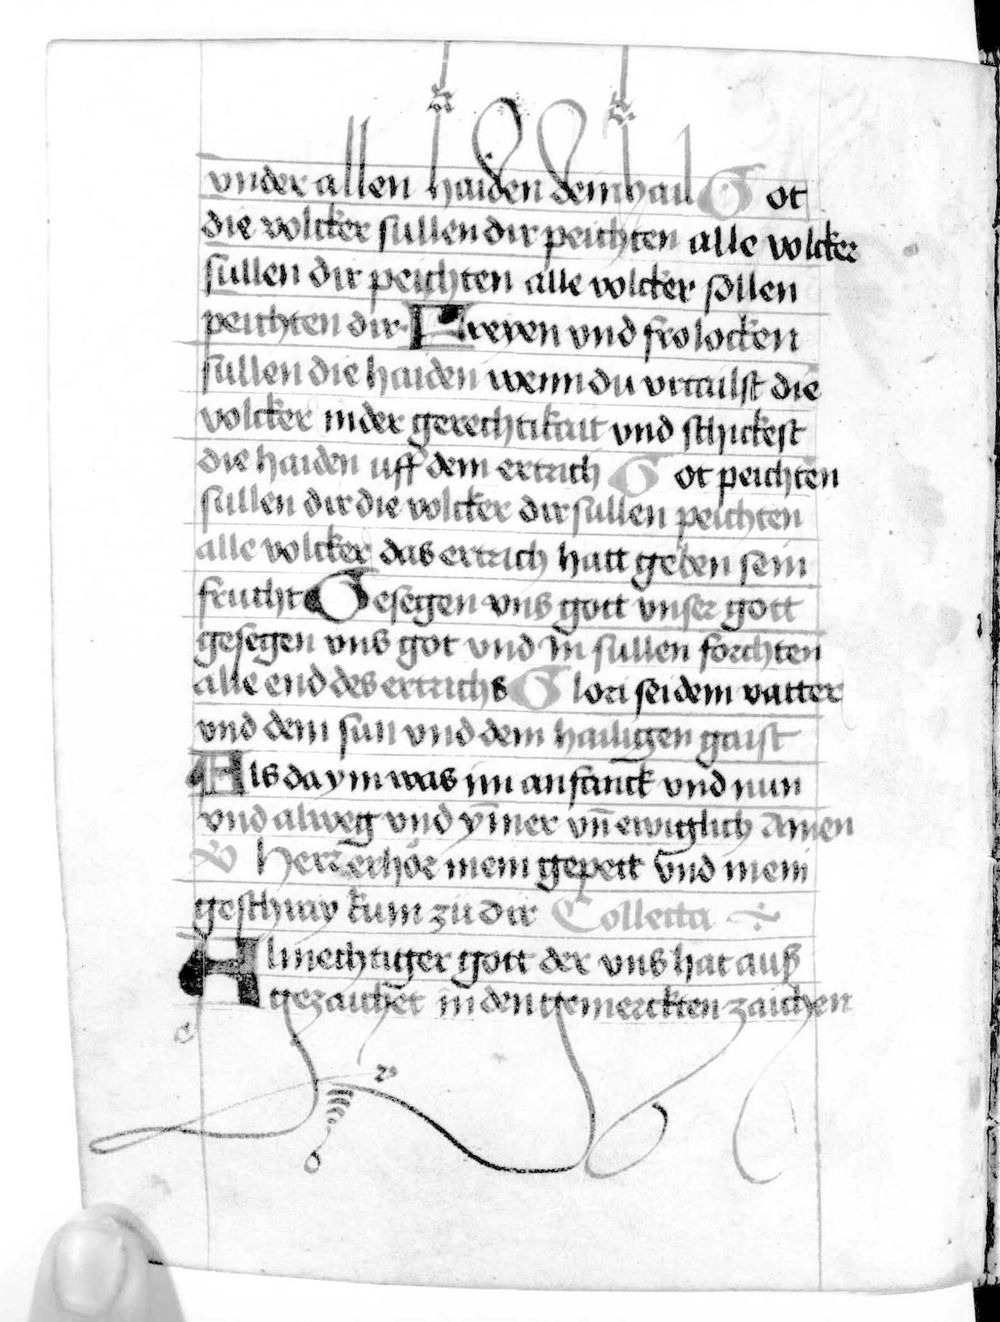 vnder allen haiden dein hail Got
die volcker sullen dir peichten alle volcker
sullen dir peichten alle volcker sollen
peichten dir Freyen vnd frolocken
sullen die haiden wenn du vrtailst die
volcker in der gerechtikait vnd schickest
die haiden uff dem ertrich Got peichten
sullen dir die volcker dir sullen peichten
alle volcker das ertrich hatt geben sein
frucht Gesegen vns gott vnser gott
gesegen vns got vnd In sullen forchten
alle end des ertrichs Glori sei dem vatter
vnd dem sun vnd dem hailigen gaist
Als da ym was im anfanck vnd nun
vnd alweg vnd ym̄er vn̄ ewiglich Amen
V Herr erhör mein gepett vnd mein
geschray kum zu dir Collecta
Almechtiger gott der vns hat auß
gezaichet in den gemerckten zaichen